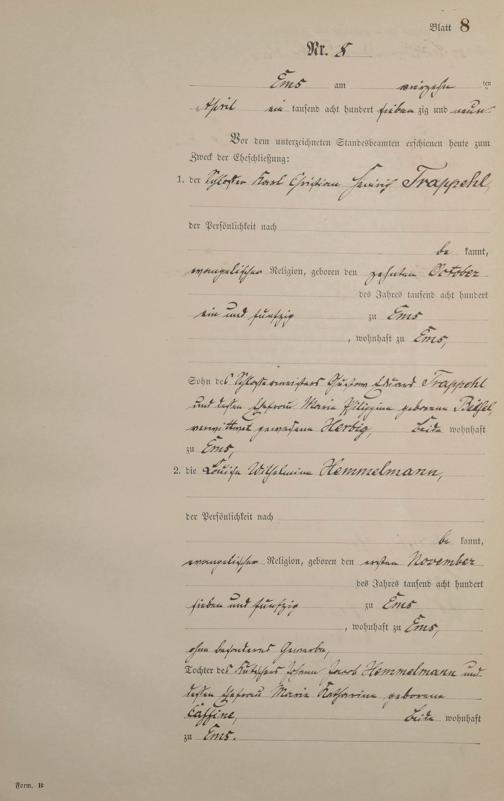 Blatt 8
Nr. 8
Ems am vierzehn ten
April ein tausend acht hundert siebenzig und neun
Vor dem unterzeichneten Standesbeamten erschienen heute zum
Zweck der Eheschließung:
1. der Schlosser Karl Christian Heinrich Trappehl,
der Persönlichkeit nach
be kannt,
evangelischer Religion, geboren den zehnten October
des Jahres tausend acht hundert
ein und fünfzig zu Ems
, wohnhaft zu Ems,
Sohn des Schlossermeisters Gustav Eduard Trappehl
und dessen Ehefrau Maria Philippina geborene
verwittwet gewesene Herbig, beide wohnhaft
zu Ems,
2. die Louisa Wilhelmina Hemmelmann,
der Persönlichkeit nach
be kannt,
evangelischer Religion, geboren den ersten November
des Jahres tausend acht hundert
sieben und fünfzig zu Ems
, wohnhaft zu Ems,
ohne besonderes Gewerbe,
Tochter des Kutschers Johann Jacob Hemmelmann und
dessen Ehefrau Maria Katharina geborene
Caffine, beide wohnhaft
zu Ems.
Form. B